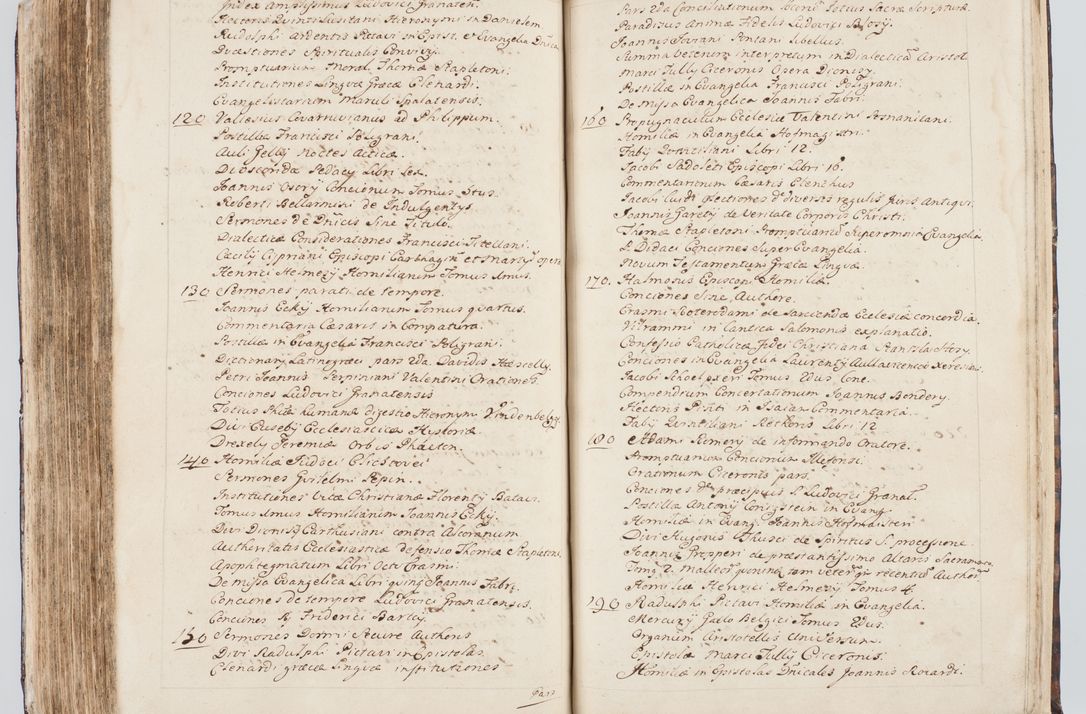 Index Amplissimus Ludovici Granaten.
Hectoris Quinti Lusitani Hieronymi in Danielem
Rudolphi Ardentis Pictavi in Epist. et Evangelia Dnica
Quæstiones Spiritualis Convivij
Promptuarium Moral. Thomæ Stapletoni.
Institutiones Linguæ Græcæ Clenardi.
Evangelistarium Maruli Spalatensis.
120 Valesius Covarruvianus ad Philippum.
Postilla Francisci Poligrani.
Auli Gellij Noctes Atticæ.
Dioscoridæ Pedacij Libri Sex.
Joannis Osorij Concionum Tomus
Roberti Bellarmini de Indulgentijs.
Sermones de Dnicis Sine Titulo.
Dialecticæ Considerationes Francisci Titellani.
Cæcilij Cipriani Episcopi Carthagin et Martyr opera
Henrici Helmezij Homilianum Tomus Imus.
130 Sermones parati de tempore.
Joannis Eckij Homilianum Tomus quartus.
Commentaria Cæsaris in
Postilla in Evangelia Francisci Poligrani.
Dictionarij Latinogræci pars 2da. Davidis
Petri Joannis Perpiniani Valentini Orationes
Conciones Ludovici Granatensis
Totius Vitæ humanæ digestio Hieronym
Divi Eusebij Ecclesiasticæ Hystoriæ.
Drexely Jeremiæ Orbis Phaëton.
140 Homilia Judoci Clictovei
Sermones Guilelmi Pepin.
Institutiones vitæ Christianæ Florentij Batavi.
Tomus Imus Homilianum Joannis Eckij.
Divi Dionisij Carthusiani contra Alcoranum
Authoritatis Ecclesiasticæ defensio Thomæ Stapletoni
Apophtegmatum Libri Octo Erasmi.
De missa Evangelica Libri quinq Joannis Fabri.
Conciones de tempore Ludovici Granatensis.
Conciones Friderici
150 Sermones Dormi Secure Authoris
Divi Radulphi Pictavi in Epistolas.
Clenardi græcæ Linguæ institutiones
Pars
Pars 2da Conciliationum totius Sacræ Scripturæ.
Paradisus Animæ Fidelis Ludovici Blosij.
Joannis Joviani Pontani Libellus.
Summa Veterum interpretum in Dialecticā Aristot.
Marci Tullij Ciceronis Opera
Postillæ in Evangelia Francisci Poligrani.
De missa Evangelica Joannis Fabri.
160 Propugnaculum Ecclesiæ Valentini Posnanitani.
Homiliæ in Evangelia Hofmagistri.
Fabij Quintiliani Libri 12.
Jacobi Sadoleti Episcopi Libri 16.
Commentariorum Cæsaris Elenchus
Jacobi de diversis regulis Juris Antiqui.
Joannis Garetij de Veritate Corporis Christi.
Thomæ Stapletoni Promptuariū Super omnia Evangelia.
P. Didaci Conciones Super Evangelia.
Novum Testamentum Græcæ Linguæ.
170. Halmosus Episcopi Homiliæ.
Conciones Sine Authore.
Erasmi Roterodami de Sarcienda Ecclesiæ concordia.
Vilrammi in Cantica Salomonis explanatio.
Confessio Catholicæ Fidei Christiana Stanislai Hosij.
Conciones in Evangelia Laurentij
Jacobi Tomus 2dus Conc.
Compendium Concertationum Joannis
Hectoris Pinti in Isaiam Commentaria.
Fabij Quintiliani Rethoris Libri 12
180 Adami Romerij de informando Oratore.
Promptuarium Concionum Illefonsi.
Orationum Ciceronis pars.
Conciones de præcipuis S. Ludovici Granat.
Postilla Antonij Conigstein in Evang.
Homiliæ in Evang. Joannis Hofmaister
Divi Hugonis de Spiritus S. processione.
Joannis Properi de præstantissimo Altaris Sacramento.
Tomg 2. Malleor tam veter q recentiū Authorū
Homiliæ Henrici Helmezij Tomus 4.
190 Radulphi Pictavi Homiliæ in Evangelia.
Mercurij Gallo Belgici Tomus 2dus.
Organum Aristotelis Universum.
Epistolæ Marci Tullij Ciceronis.
Homiliæ in Epistolas Dnicales Joannis Roiardi.